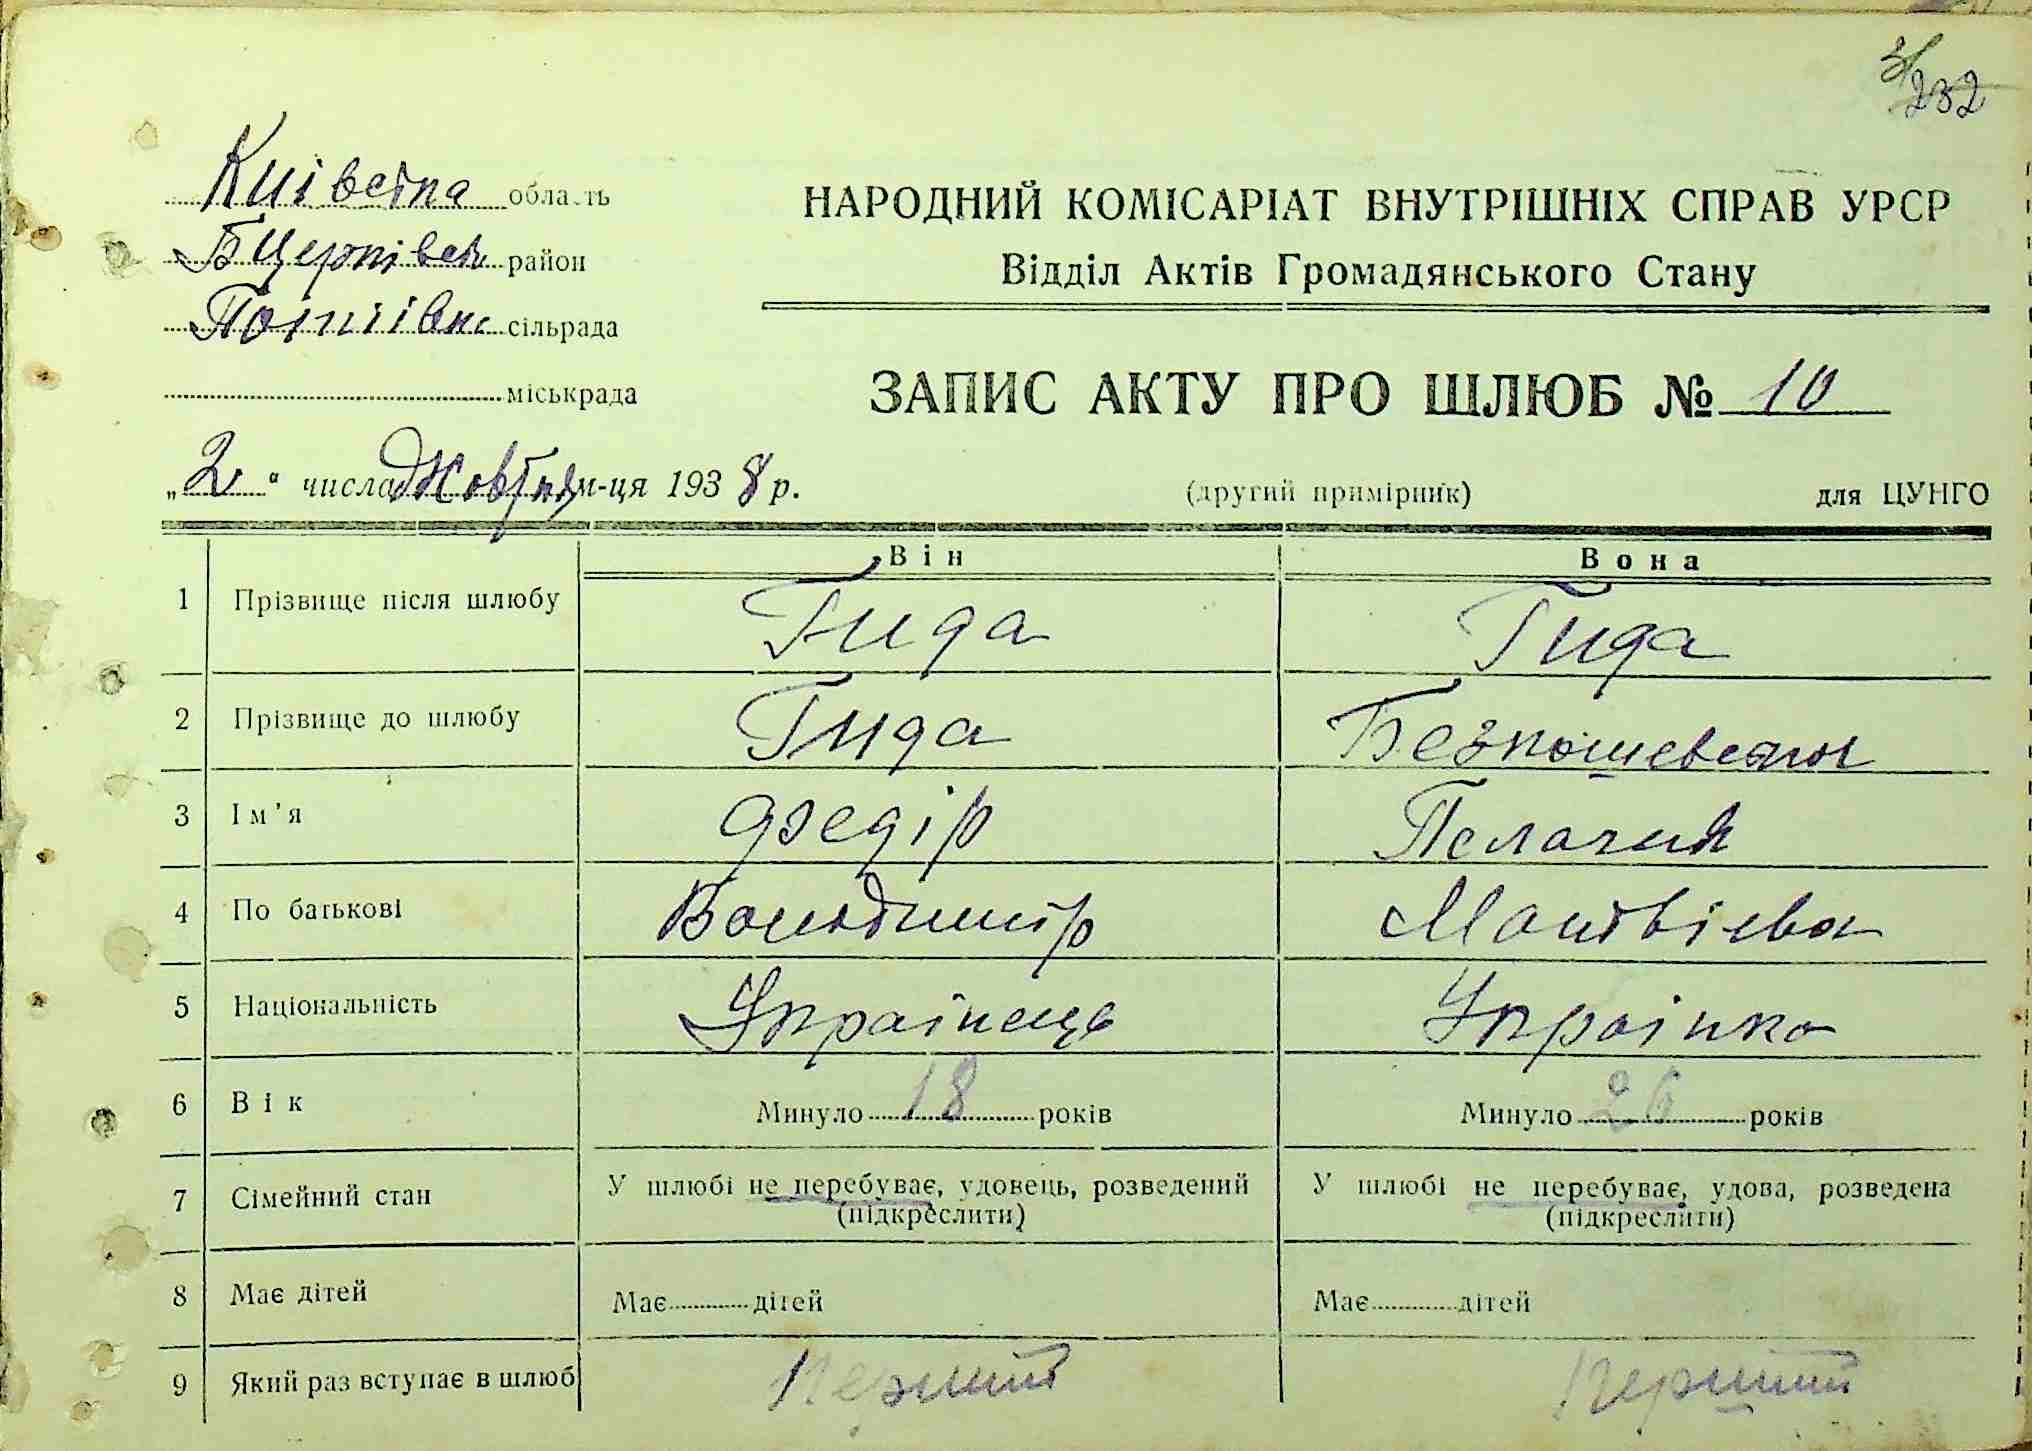 3/232
Київська область
БЦерківськ район
сільрада
міськрада
НАРОДНИЙ КОМІСАРІАТ ВНУТРІШНІХ СПРАВ УРСР
Відділ Актів Громадянського Стану
ЗАПИС АКТУ ПРО ШЛЮБ № 10
„2“ числа Жовтня м-ця 1938 р. (другий примірник) для ЦУНГО
Він Вона
1 Прізвище після шлюбу Гида Гида
2 Прізвище до шлюбу Гида
3 Ім'я Федір Пелагия
4 По батькові Володимір Матвієва
5 Національність Українець Українка
6 Вік Минуло 18 років Минуло 26 років
7 Сімейний стан У шлюбі не перебуває, удовець, розведений (підкреслити) У шлюбі не перебуває, удова, розведена (підкреслити)
8 Має дітей Має дітей Має дітей
9 Який раз вступає в шлюб Перший Перший